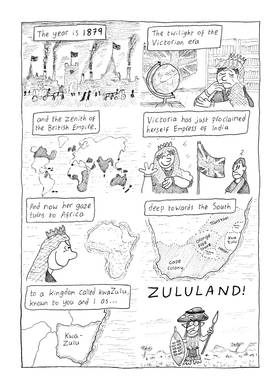 The year is 1879
The twilight of the
Victorian era
and the zenith of
the British Empire.
Victoria has just proclaimed
herself Empress of India
And now her gaze
turns to Africa
deep towards the South
Transvaal
Orange
Free
State
Kwa
Zulu
Cape
Colony
to a kingdom called kwaZulu,
known to you and I as...
Kwa-
Zulu
ZULULAND!